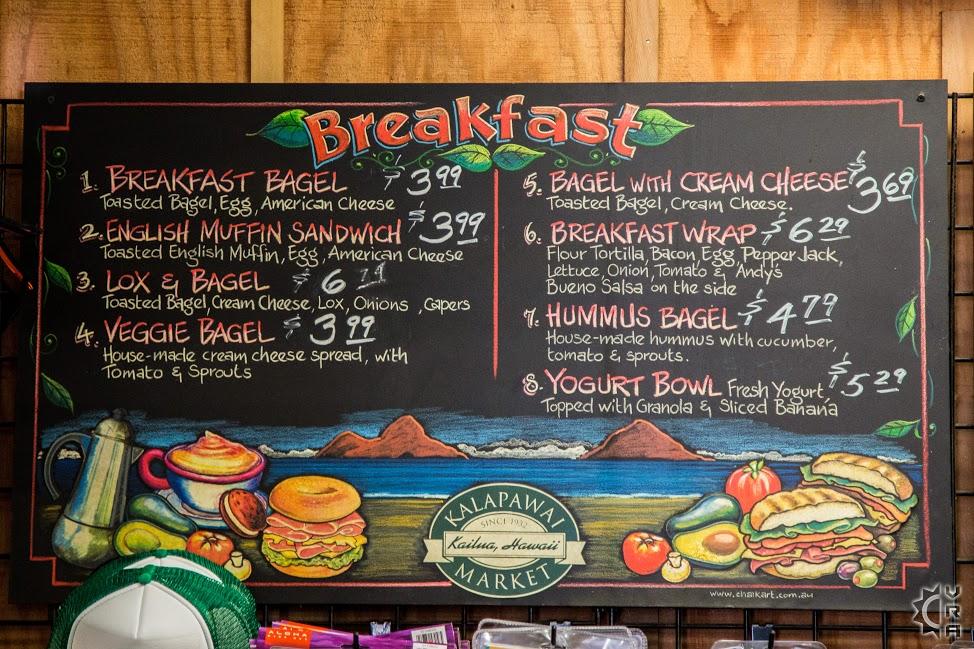 Breakfast
1. BREAKFAST BAGEL $3.99
Toasted Bagel, Egg, American Cheese
2. ENGLISH MUFFIN SANDWICH $3.99
Toasted English Muffin, Egg, American Cheese
3. LOX & BAGEL $6
Toasted Bagel, Cream Cheese, Lox, Onions, Capers
4. VEGGIE BAGEL $3.99
House-made cream cheese spread, with
Tomato & Sprouts
5. BAGEL WITH CREAM CHEESE $3.69
Toasted Bagel, Cream Cheese.
6. BREAKFAST WRAP $6.29
Flour Tortilla, Bacon, Egg, Pepper Jack,
Lettuce, Onion, Tomato & Andys
Bueno Salsa on the side
7. HUMMUS BAGEL $4.79
House-made hummus with cucumber,
tomato & sprouts.
8. YOGURT BOWL Fresh Yogurt $5.29
Topped with Granola & Sliced Banana
KALAPAWAI
SINCE 1932
Kailua, Hawaii
MARKET
www.chalkart.com.au
ALOHA
VRA